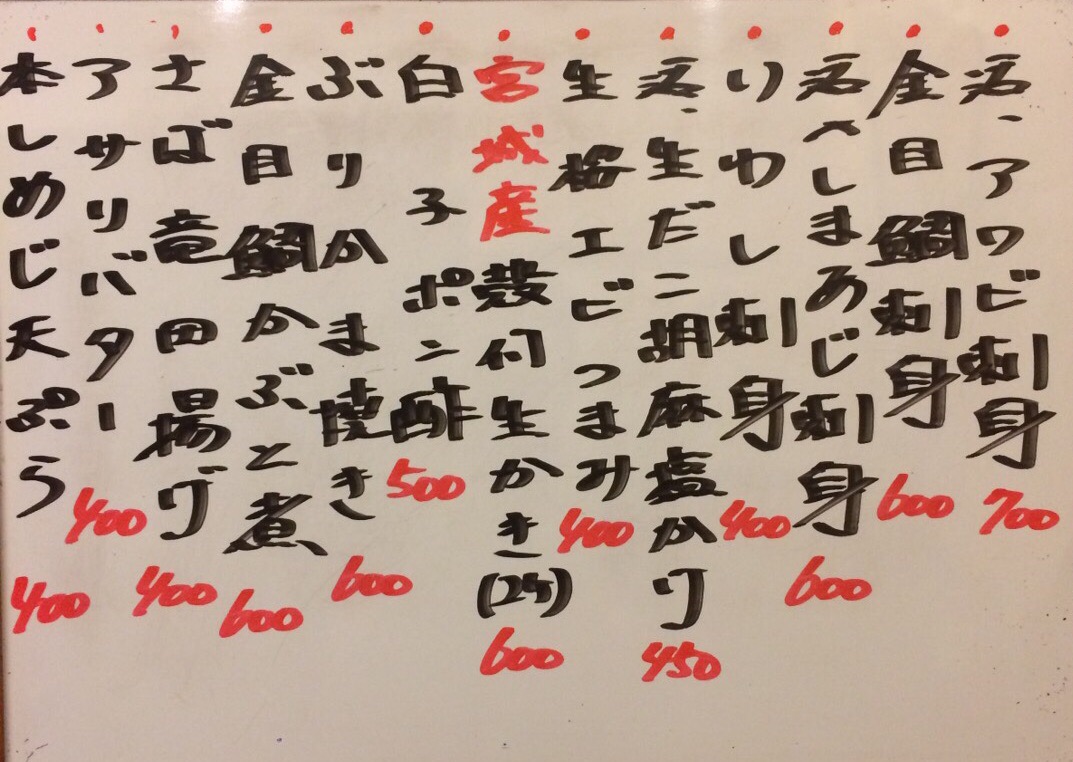 活、アワビ刺身 700
金目鯛刺身 600
活〆しまあじ刺身 600
いわし刺身 400
活、生だこ胡麻塩かけ 450
生桜エビつまみ 400
宮城産殻付生かき(2ケ) 600
白子ポン酢 500
ぶりかま焼き 600
金目鯛かぶと煮 600
さば竜田揚げ 400
アサリバター 400
本しめじ天ぷら 400